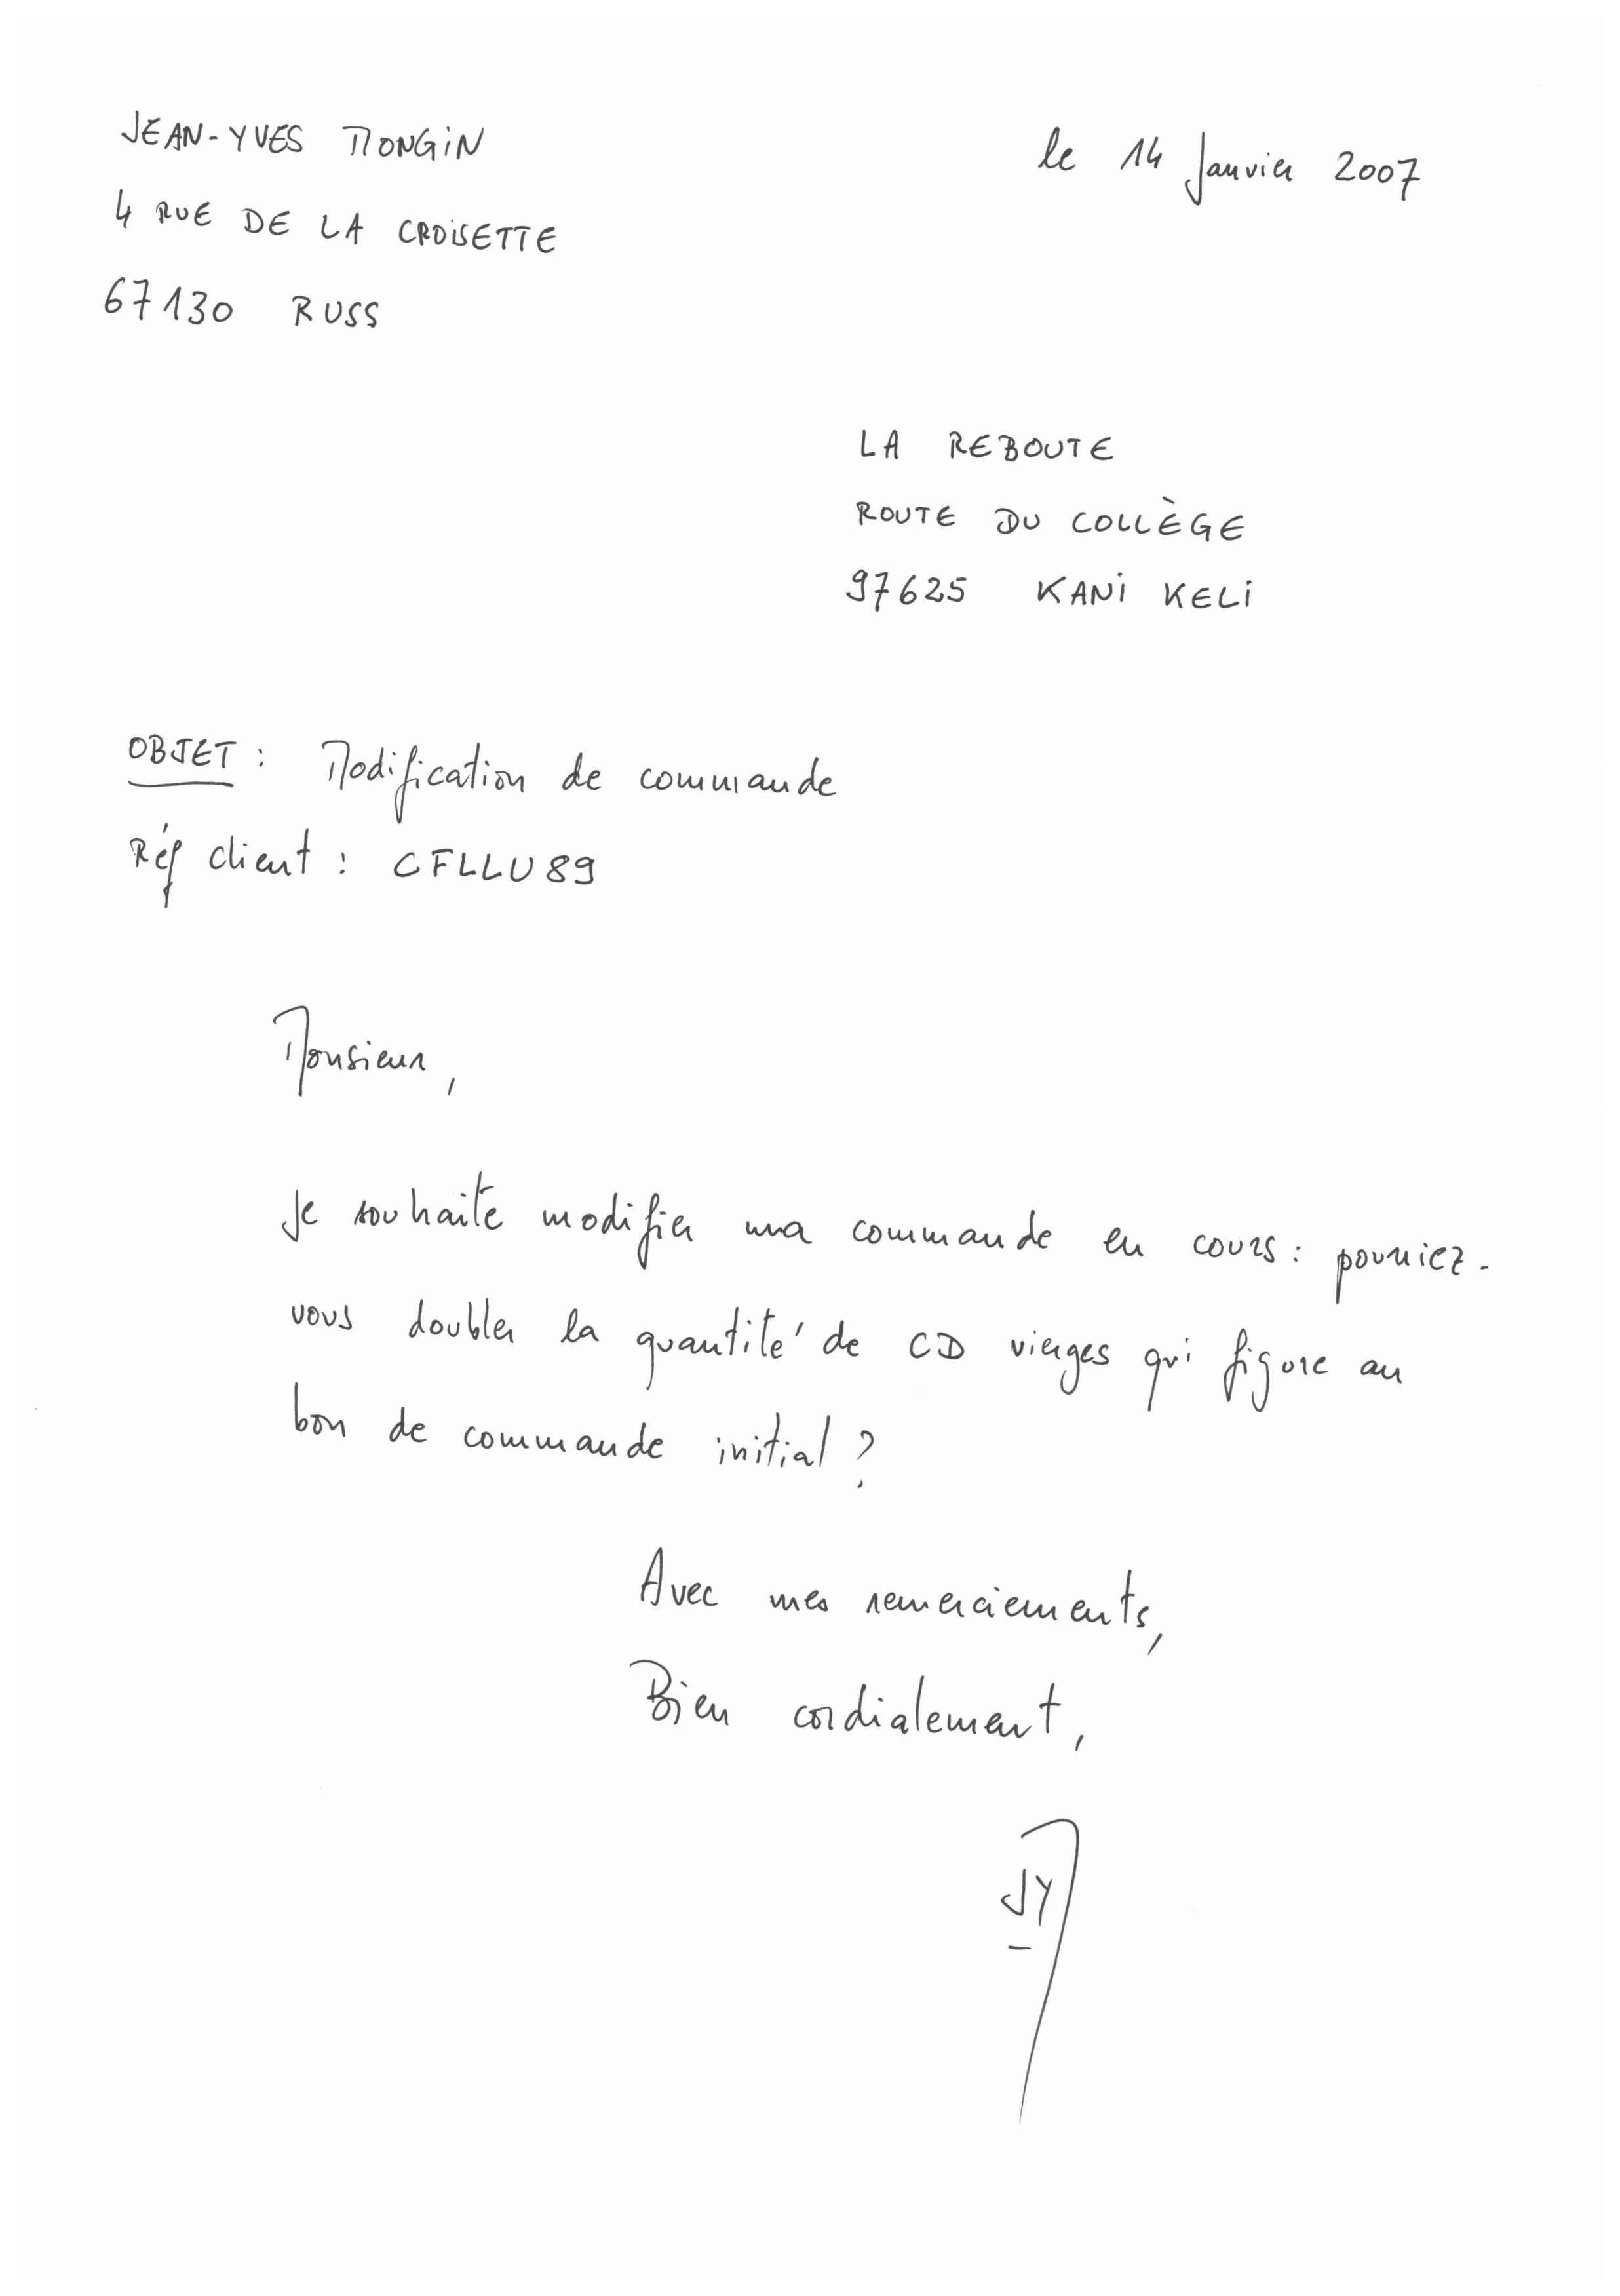 JEAN-YVES MONGIN
le 14 Janvier 2007
4 RUE DE LA CROISETTE
67130 RUSS
LA REBOUTE
ROUTE DU COLLÈGE
97625 KANI KELI
OBJET : Modification de commande
Réf client : CFLLU89
Monsieur,
Je souhaite modifier ma commande en cours : pourriez-
vous doubler la quantité de CD vierges qui figure au
bon de commande initial ?
Avec mes remerciements,
Bien cordialement,
JY